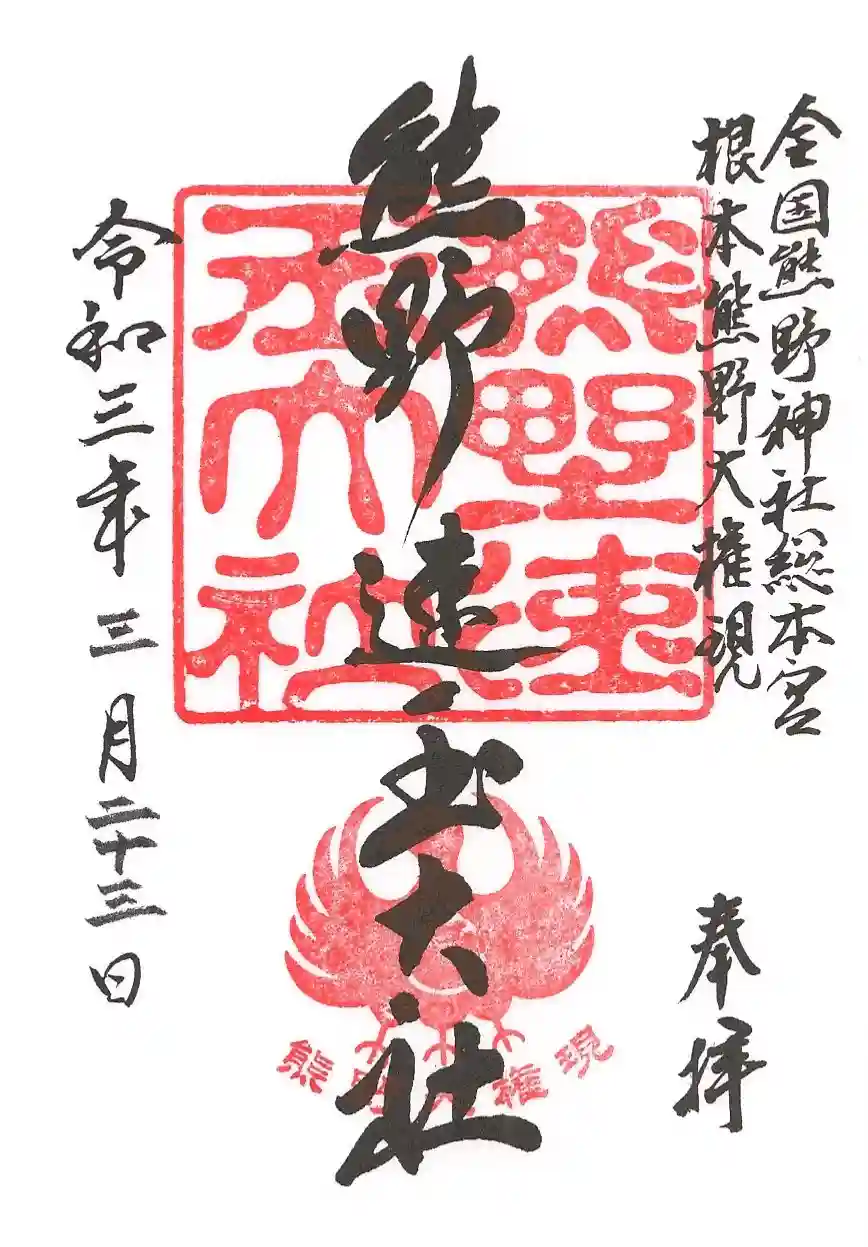 全国熊野神社総本宮
根本熊野大権現
奉拝
熊野速玉大社
熊野速玉大社
熊野大権現
令和三年三月二十三日